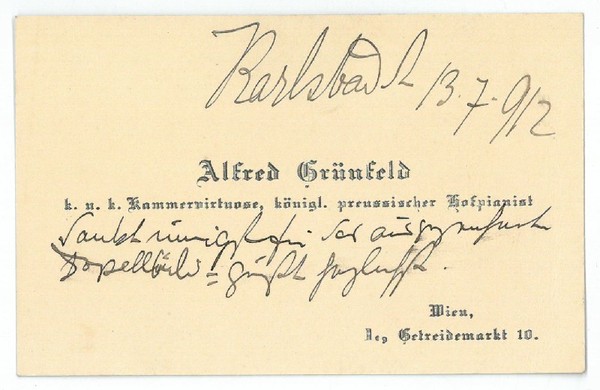 Karlsbad 13.7.912
Alfred Grünfeld
k. u. k. Kammervirtuose, königl. preussischer Hofpianist
dankt innigst für das
grüßt
Wien,
Getreidemarkt 10.